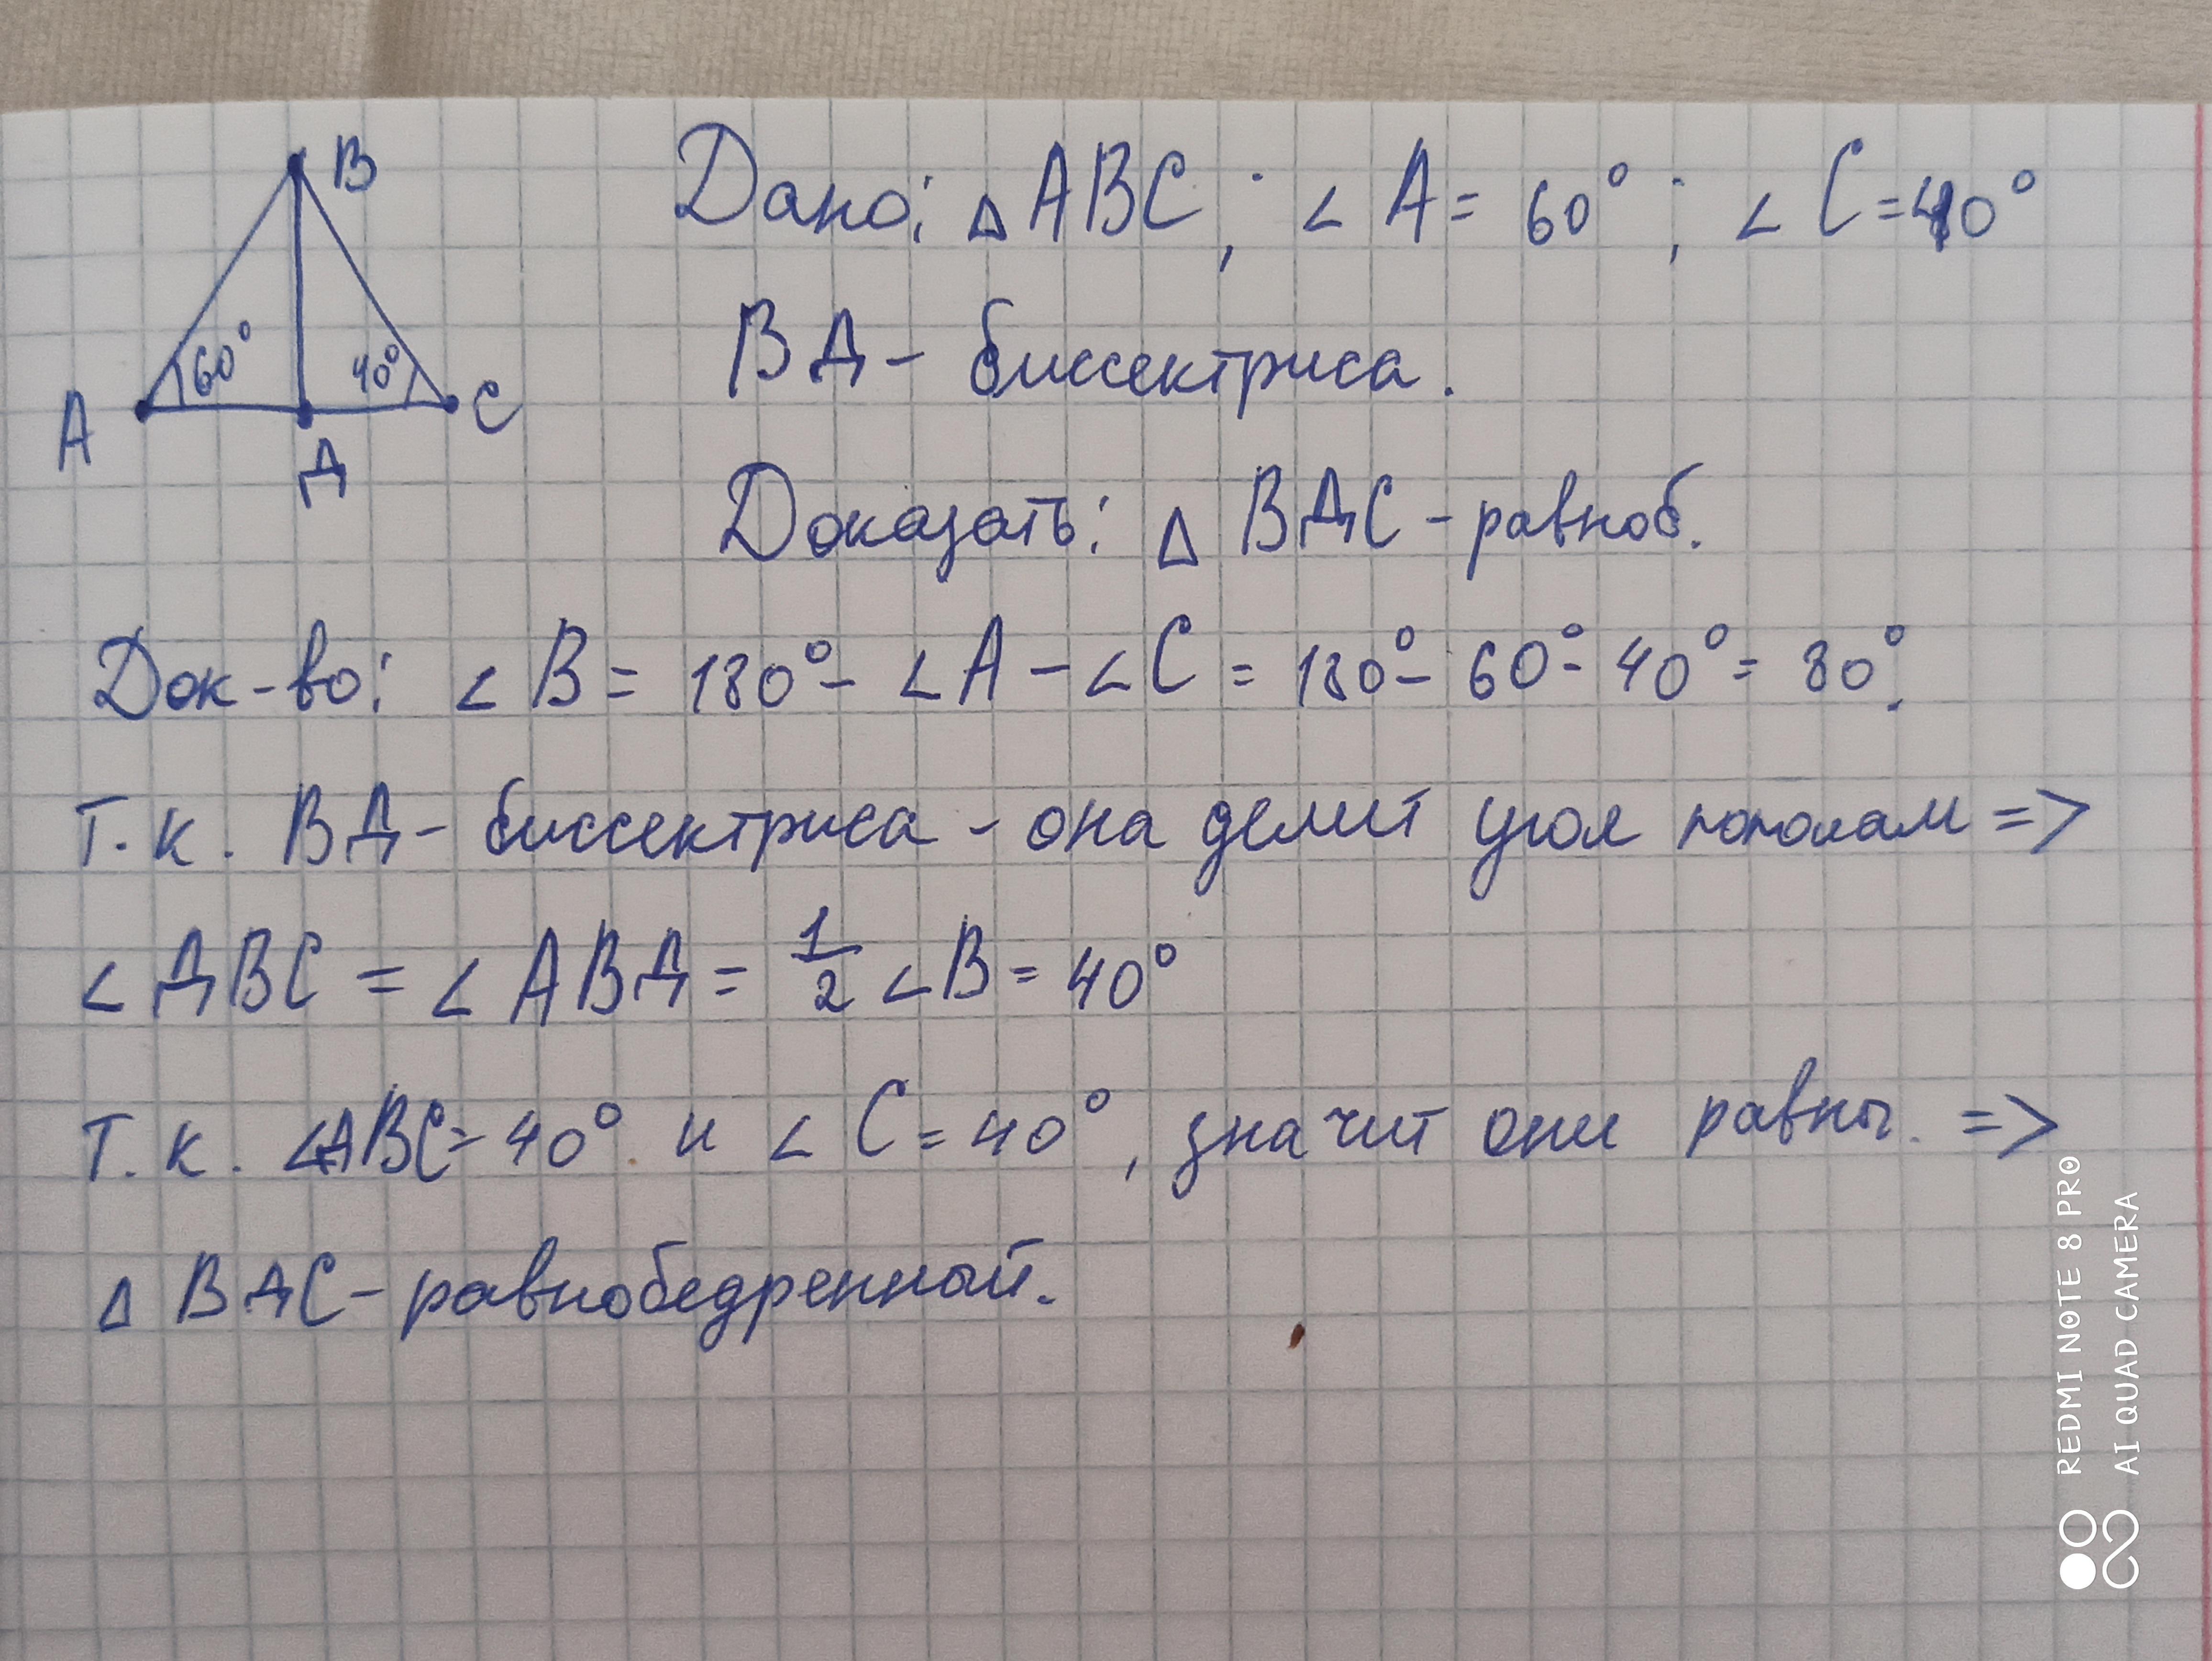 B
60°
40°
A
Д
C
Дано: △ABC; ∠A = 60°; ∠C = 40°
ВД - биссектриса.
Доказать: △ ВДС - равноб.
Док-во: ∠B = 180° - ∠A - ∠C = 180° - 60° - 40° = 80°.
Т.к. ВД - биссектриса - она делит угол пополам =>
∠ДВС = ∠АВД = 1/2 ∠B = 40°
Т.к. ∠ABC = 40° и ∠C = 40°, значит они равны. =>
△ ВДС - равнобедренный.
REDMI NOTE 8 PRO
AI QUAD CAMERA